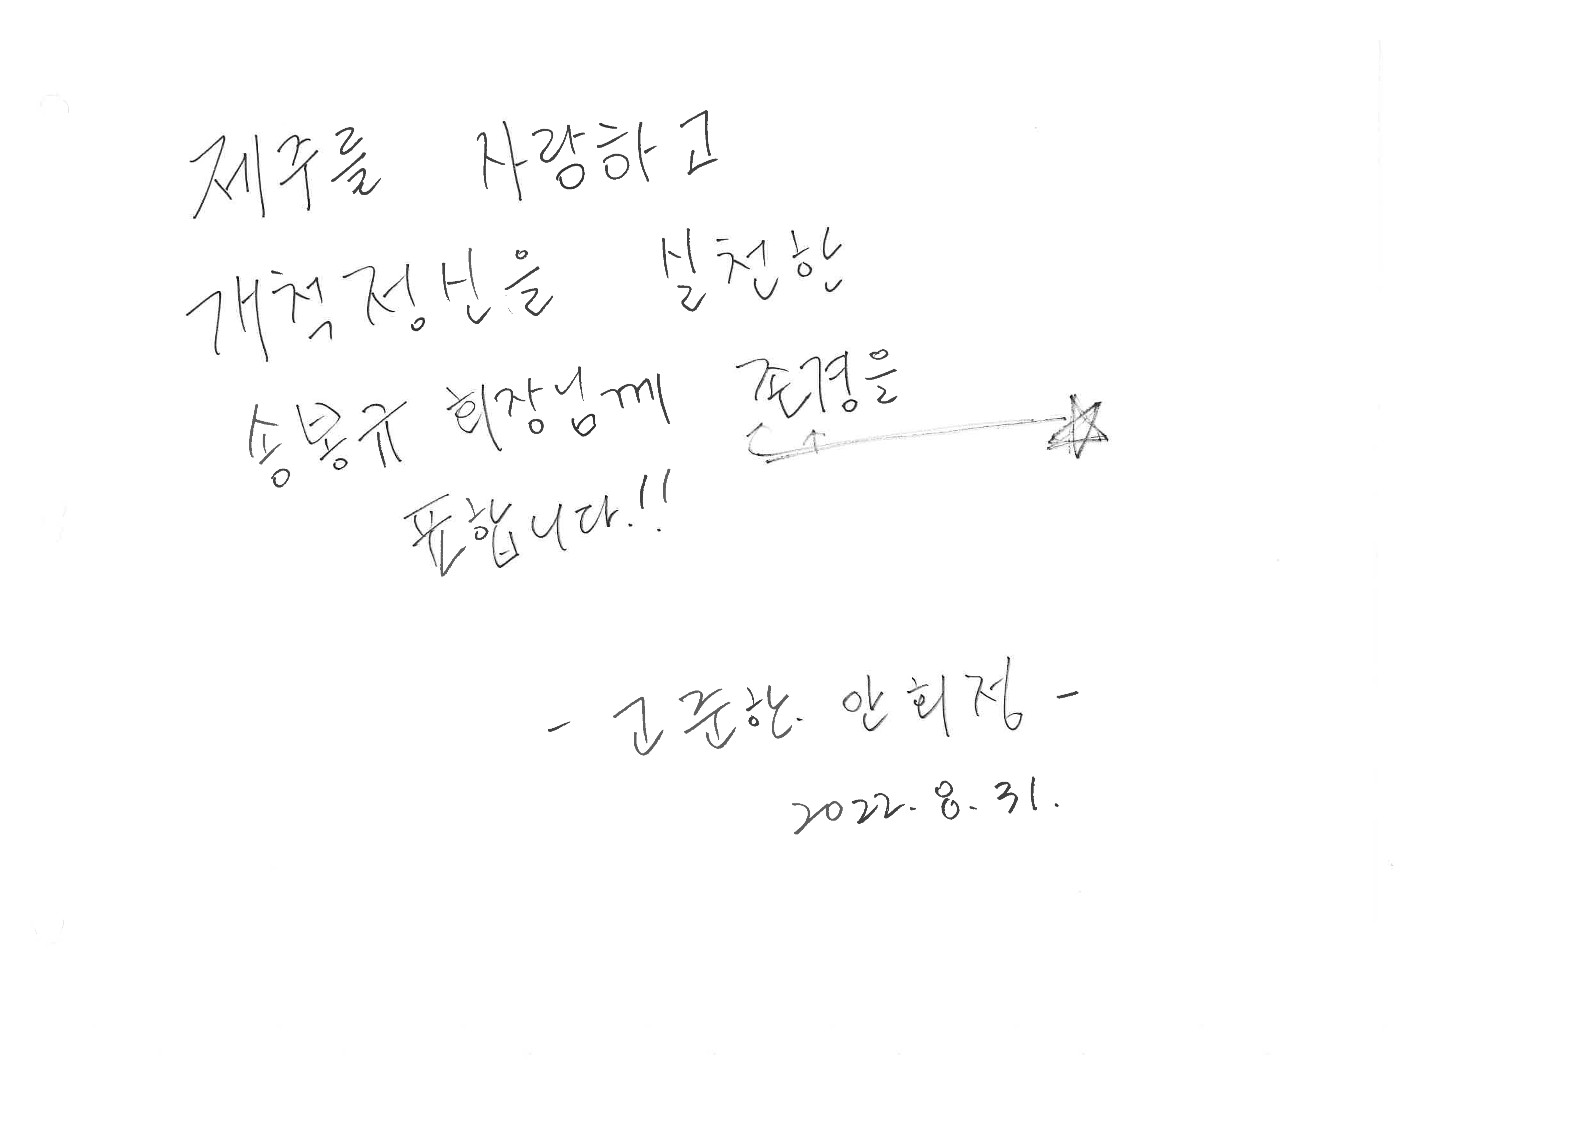 제주를 사랑하고
개척정신을 실천한
송봉규 회장님께 존경을
표합니다.!!
- 고준한. 안희정 -
2022. 8. 31.